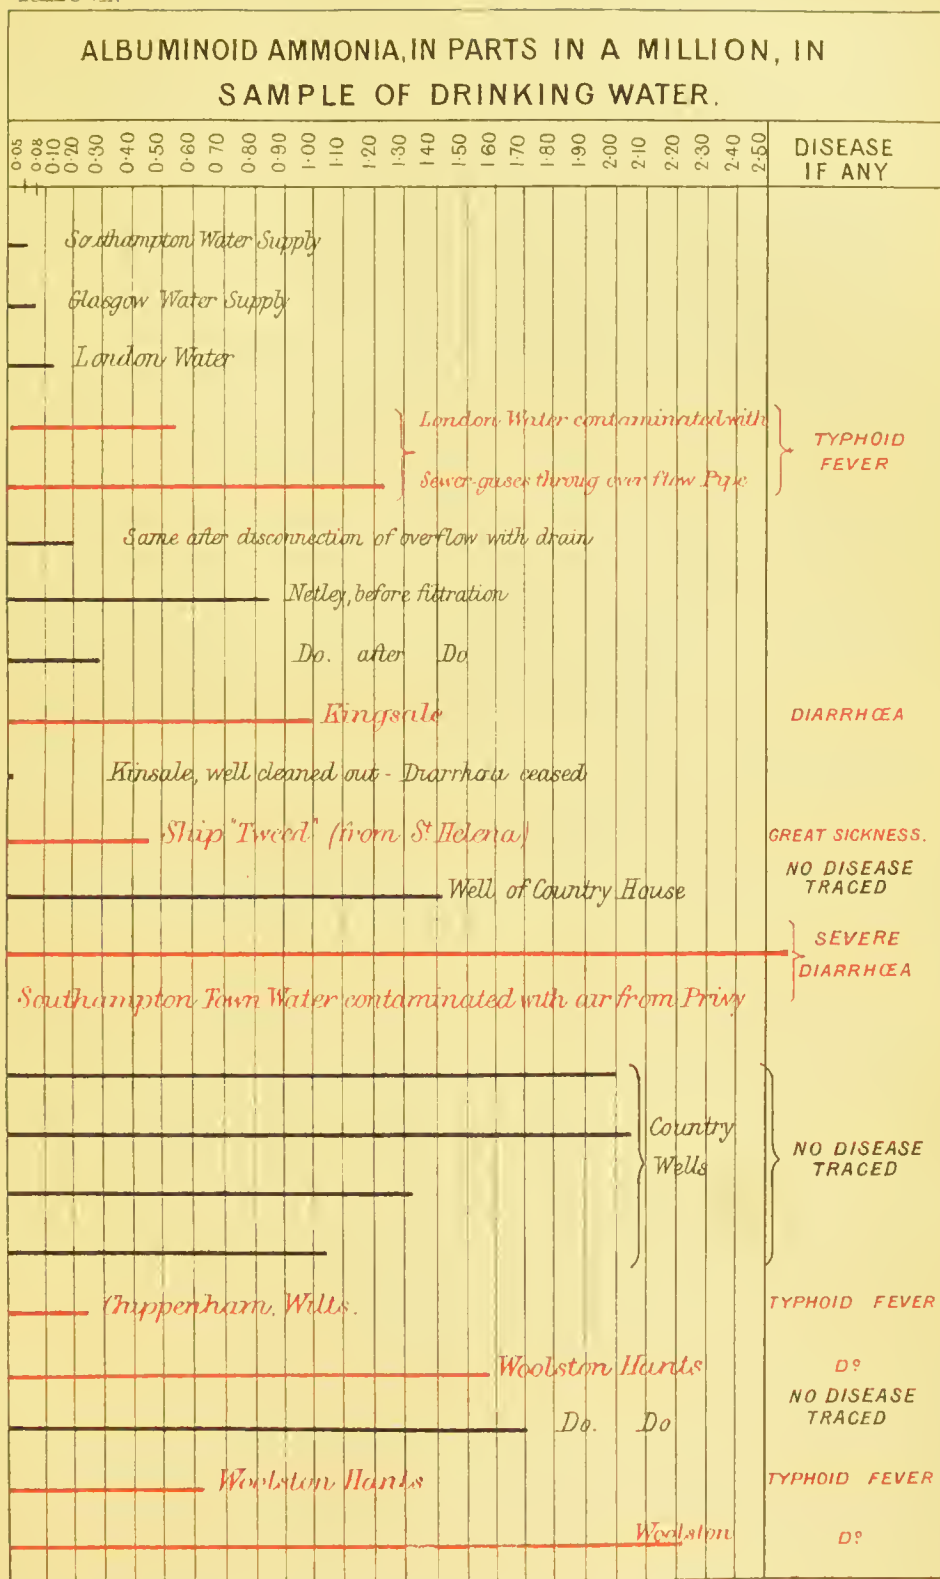 ALBUMINOID AMMONIA, IN PARTS IN A MILLION, IN
SAMPLE OF DRINKING WATER.
0·05 0·08 0·10 0·20 0·30 0·40 0·50 0·60 0·70 0·80 0·90 1·00 1·10 1·20 1·30 1·40 1·50 1·60 1·70 1·80 1·90 2·00 2·10 2·20 2·30 2·40 2·50
DISEASE
IF ANY
Southampton Water Supply
Glasgow Water Supply
London Water
London Water contaminated with
Sewer-gases throug over flow Pipe
TYPHOID
FEVER
Same after disconnection of overflow with drain
Netley, before filtration
Do. after Do
Kingsale
DIARRHŒA
Kinsale, well cleaned out - Diarrhœa ceased
Ship "Tweed" (from St Helena)
GREAT SICKNESS.
Well of Country House
NO DISEASE
TRACED
SEVERE
DIARRHŒA
Southampton Town Water contaminated with air from Privy
Country
Wells
NO DISEASE
TRACED
Chippenham. Wilts.
TYPHOID FEVER
Woolston Hants
Do
Do. Do
NO DISEASE
TRACED
Woolston Hants
TYPHOID FEVER
Woolston
Do